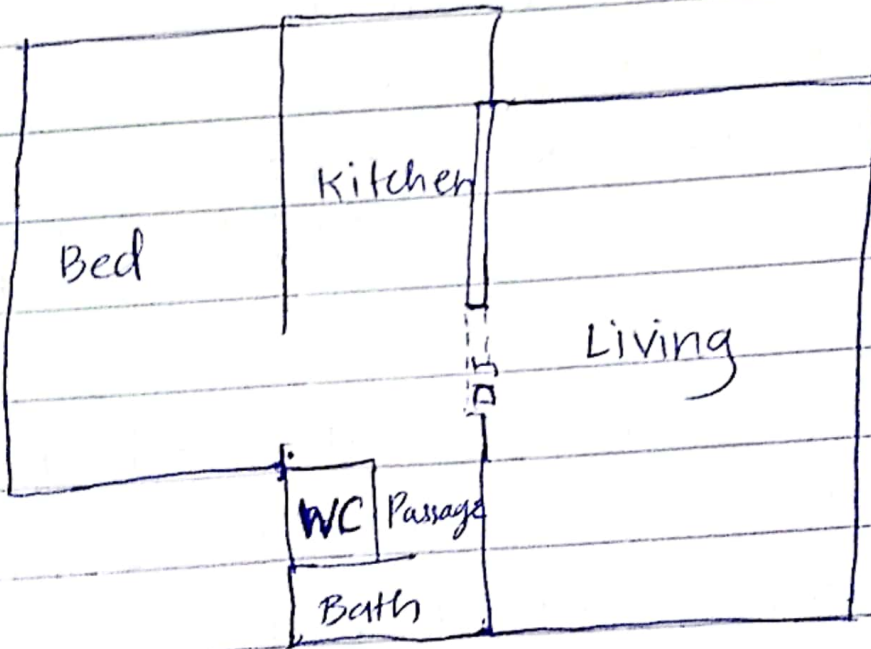 Kitchen
Bed
Living
WC
Passage
Bath